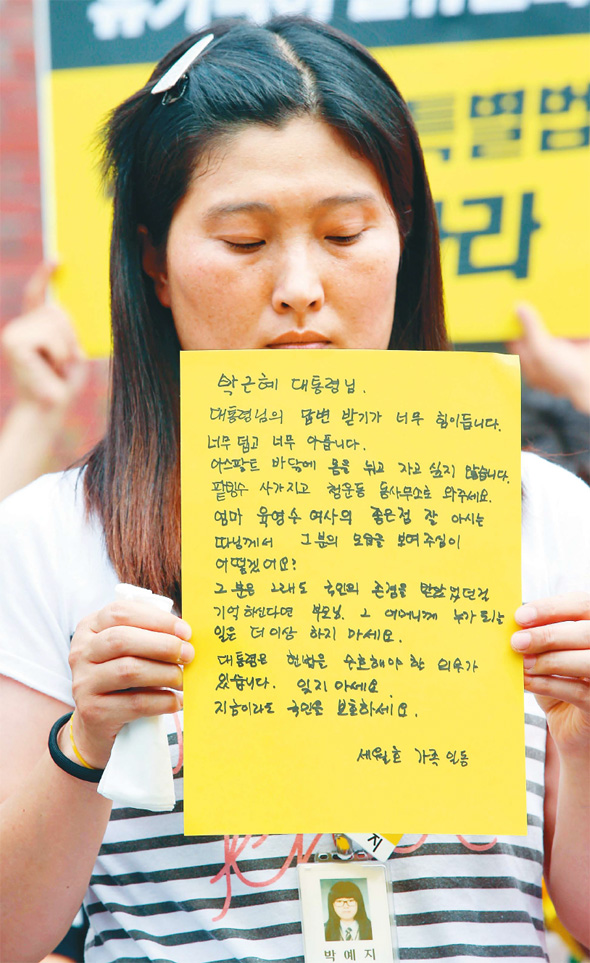 특별법
라
박근혜 대통령님.
대통령님의 답변 받기가 너무 힘이듭니다.
너무 덥고 너무 아픕니다.
아스팔트 바닥에 몸을 뉘고 자고 싶지 않습니다.
팥빙수 사가지고 청운동 동사무소로 와주세요.
엄마 육영수 여사의 좋은점 잘 아시는
따님께서 그분의 모습을 보여주심이
어떻겠어요?
그 분은 그래도 국민의 존경을 받았었던걸
기억하신다면 부모님. 그 어머니께 누가 되는
일은 더 이상 하지 마세요.
대통령은 헌법을 수호해야 할 의무가
있습니다. 잊지 마세요.
지금이라도 국민을 보호하세요.
세월호 가족 일동
지
박예지